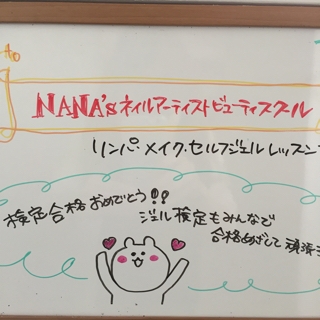 NANA'sネイルアーティストビューティスクール
リンパ メイク.セルフジェル レッスン
検定合格おめでとう!!
ジェル検定もみんなで
合格めざして頑張